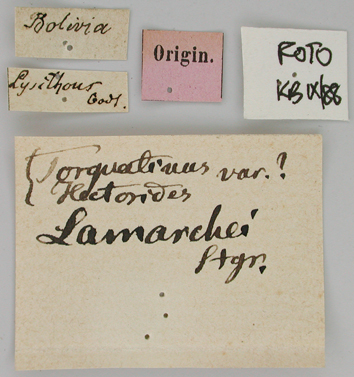 Bolivia
Lysithous
Godt.
Origin.
FOTO
KB IX/88
Torquatinus var.?
Hectorides
Lamarchei
Stgr.